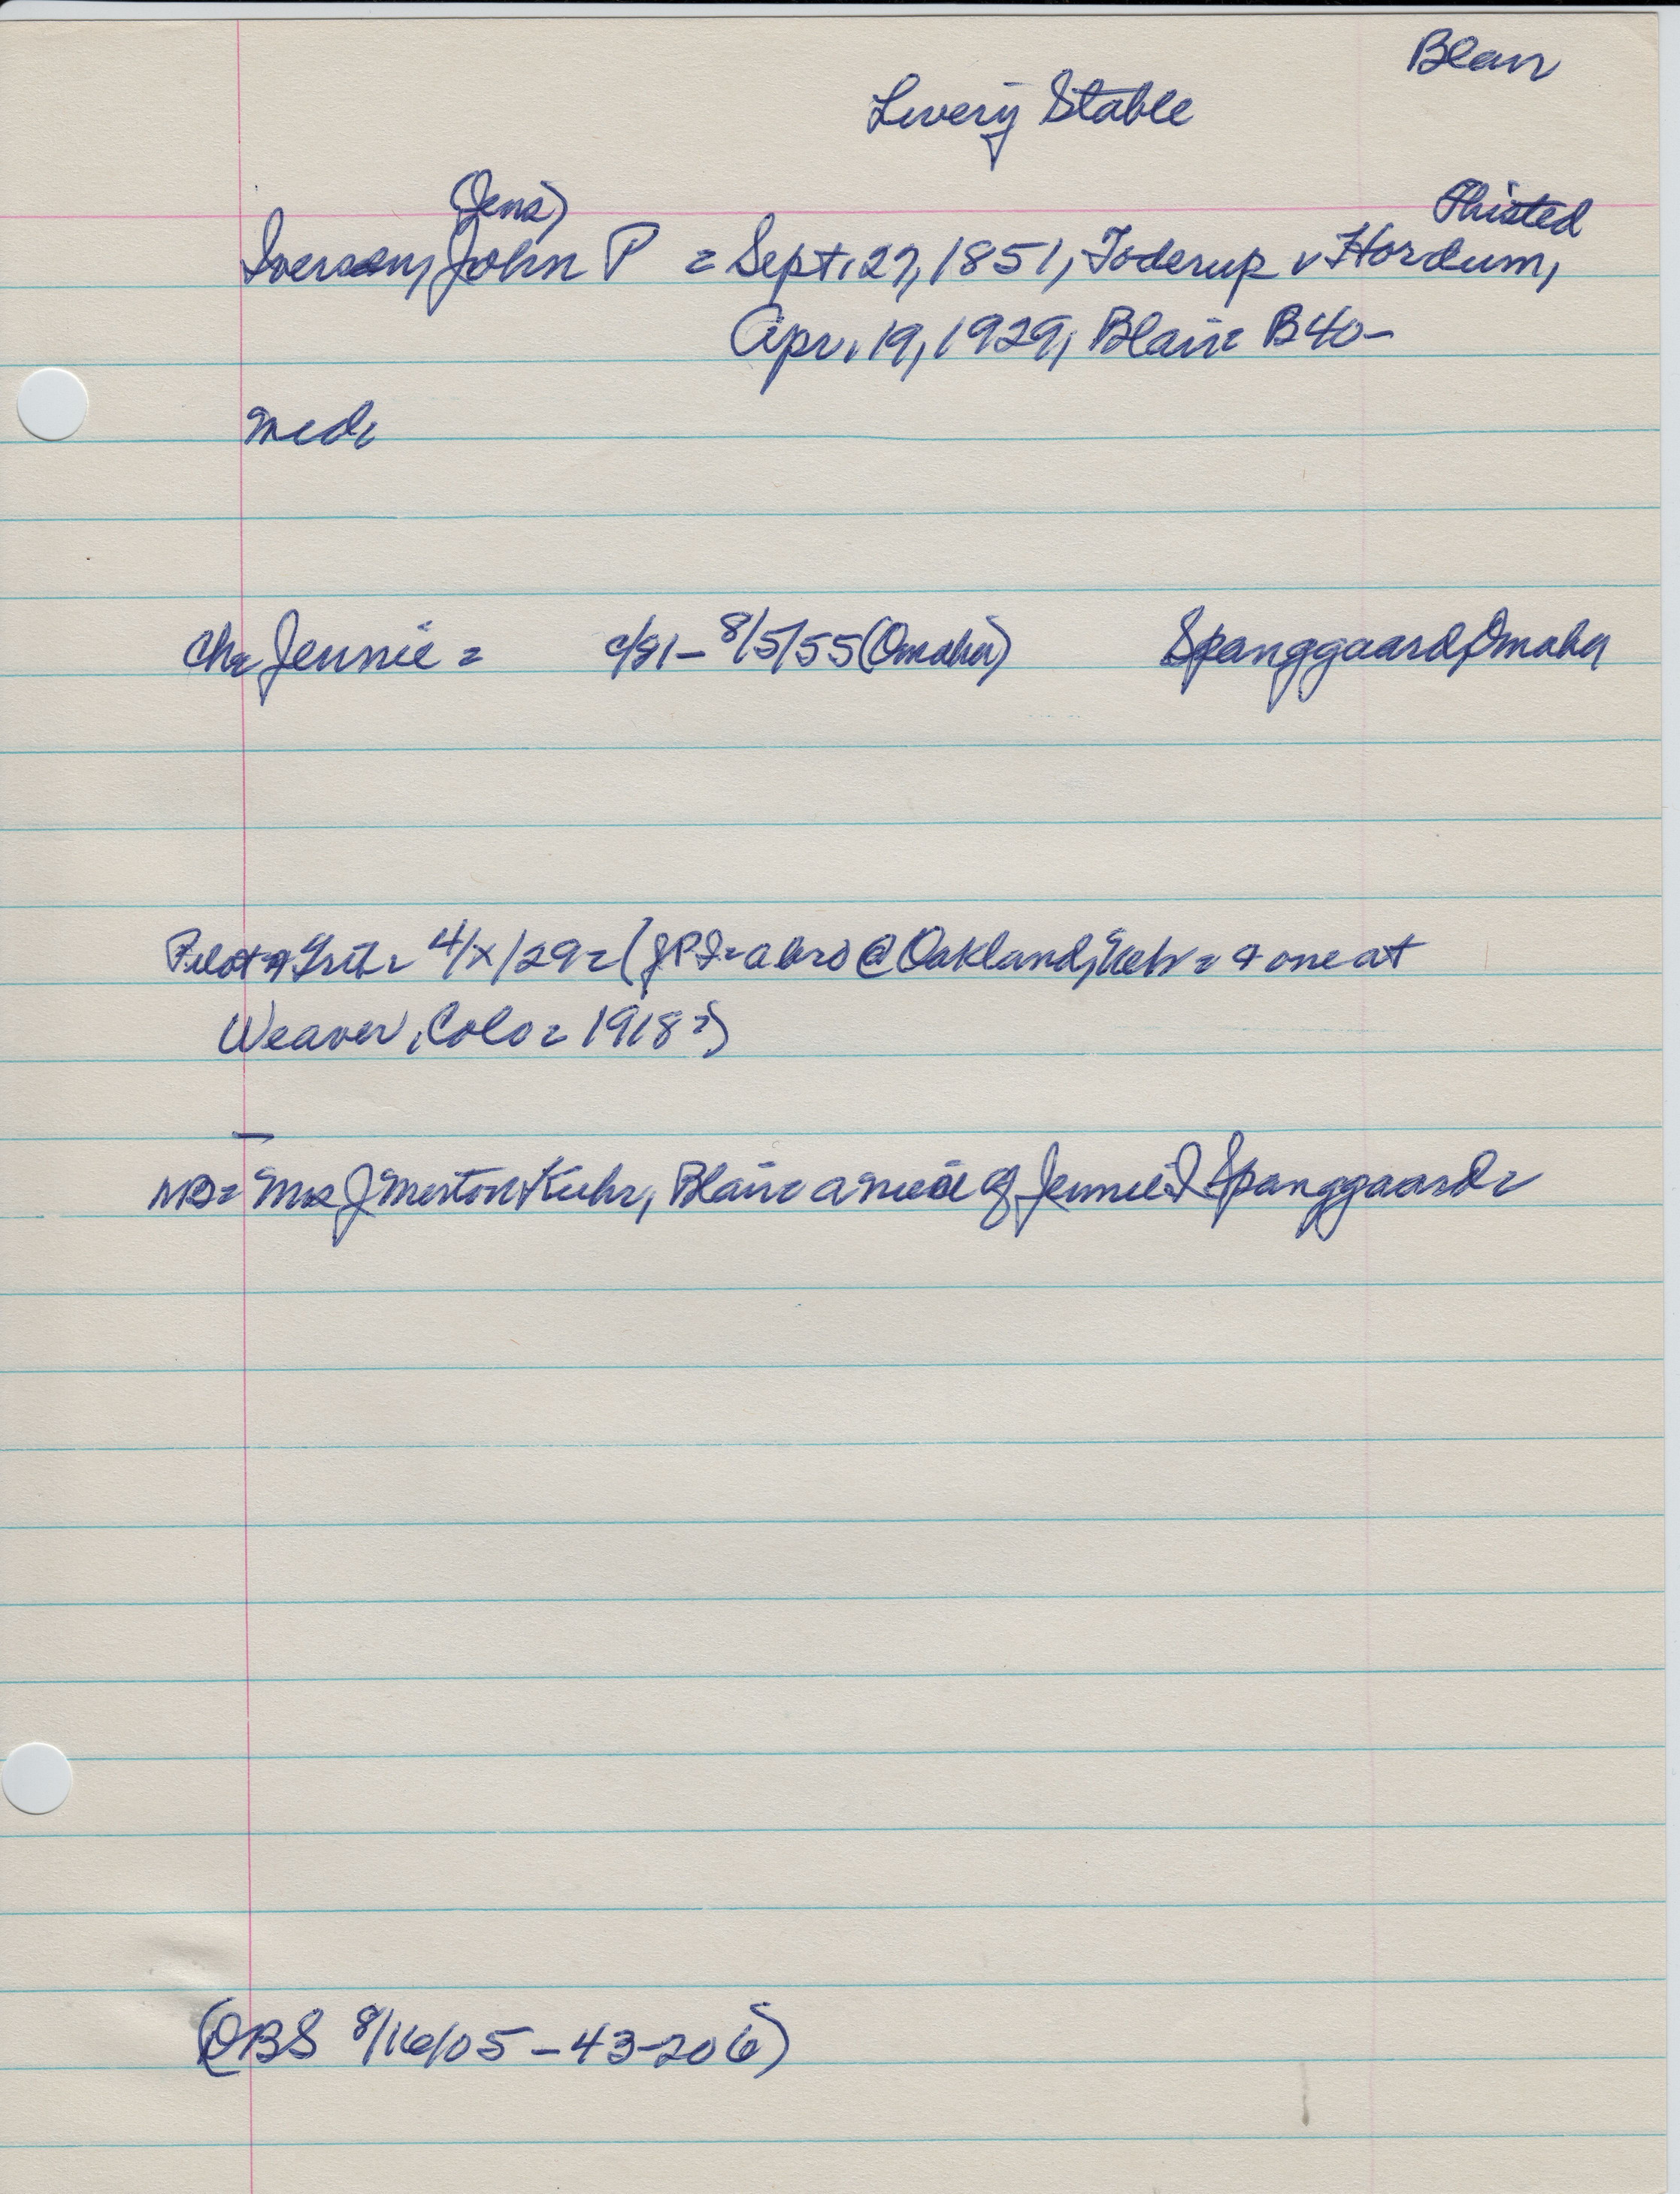 Blair
Livery Stable
(Jens) Thisted
Iversen, John P = Sept. 27, 1851, Toderup v Hordum,
Apr. 19, 1929, Blair = B40-
med.
ch = Jennie = c/81 - 8/5/55 (Omaha) Spanggaard, Omaha
Pilot = 4/x/29 = (JPI = a bro @ Oakland, Nebr = & one at
Weaver, Colo = 1918 =)
NB = Mrs J Merton Kuhr, Blair = a niece of Jennie I Spanggaard =
(OBS 8/16/05 - 43-206)